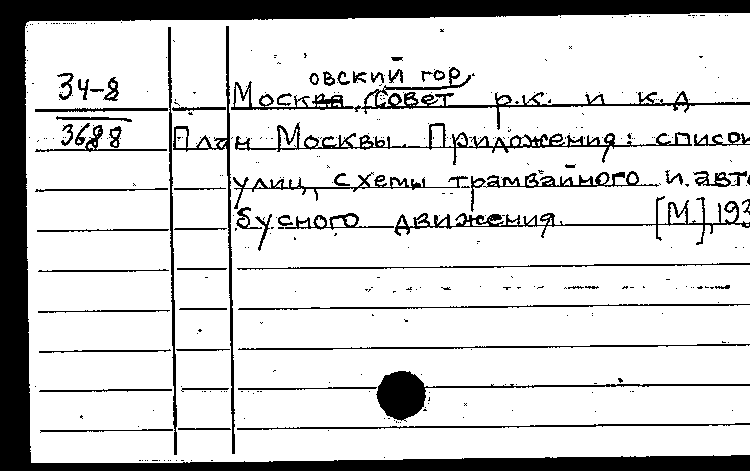 34-8
овский гор.
Москва, Совет р.к. и к.д
3688
План Москвы. Приложения: список
улиц, схемы трамвайного и авто
бусного движения. [М.], 193